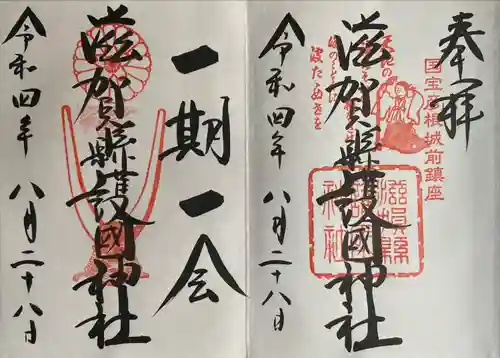 奉拝
国宝彦根城前鎮座
滋賀縣護國神社
令和四年 八月二十八日
一期一会
滋賀縣護國神社
令和四年 八月二十八日